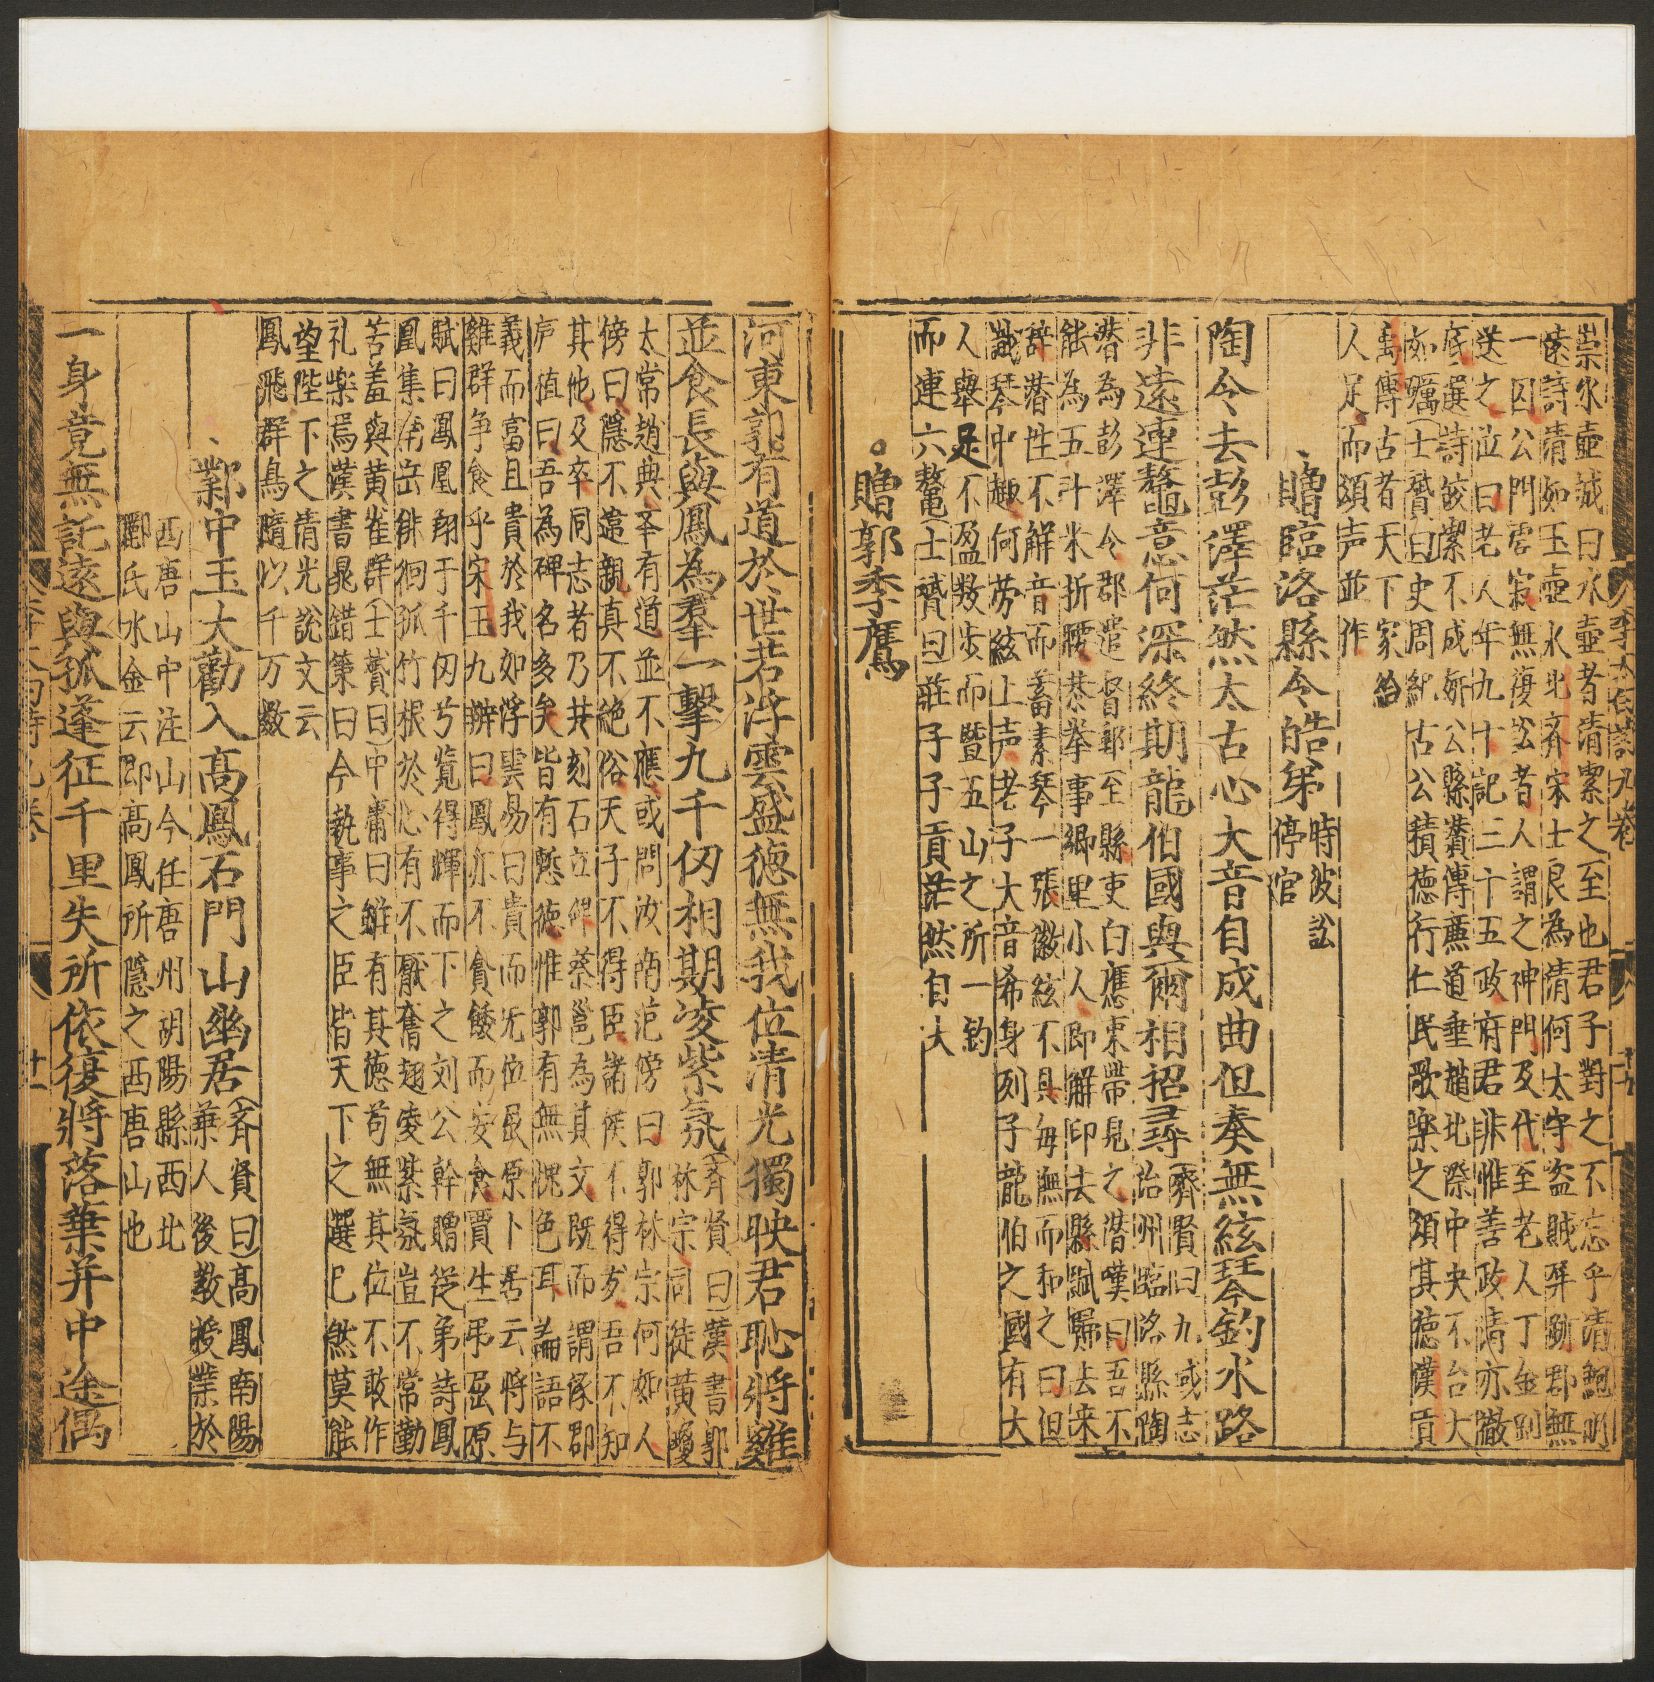 崇氷壺誡曰氷壺者清潔之至也君子對之不忘乎清鮑明
遠詩清如玉壺氷北齊宋士良為清何太守盜賊弄
一囚公門虛寂無復訟者人謂之神門及代至老人丁金剛
送之泣曰老人年九十記三十五政府君非惟善政清亦徹
底選詩皎潔不成妍公縣
如矚士贇曰史周紀古公積德行仁民歌樂之頌其德漢貢
禹傳古者天下家給
人足而頌声並作
贈臨洺縣令皓弟時被訟停官
陶令去彭澤茫然太古心大音自成曲但奏無絃琴釣水路
非遠連鼇意何深終期龍伯國與爾相招尋齊賢曰九域志
洺州臨洺縣陶
潜為彭澤令郡遣督郵至縣吏白應束帶見之潜嘆曰吾不
能為五斗米折腰恭拳事鄉里小人即解印去縣賦歸去来
辞潜性不解音而蓄素琴一張徽絃不具每撫而和之曰但
識琴中趣何勞絃上声老子大音希声列子龍伯之國有大
人舉足不盈數步而曁五山之所一釣
而連六鼇士贇曰莊子子貢茫然自失
贈郭季鷹
河東郭有道於世若浮雲盛德無我位清光獨映君恥將雞
並食長與鳳為羣一擊九千仞相期凌紫氛齊賢曰漢書郭
林宗同徒黃瓊
太常趙典辛有道並不應或問汝南范滂曰郭林宗何如人
滂曰隱不違親真不絶俗天子不得臣諸侯不得友吾不知
其他及卒同志者乃共刻石立碑蔡邕為其文既而謂涿郡
庐植曰吾為碑名多矣皆有慙德惟郭有無愧色耳論語不
義而富且貴於我如浮雲易曰貴而无位屈原卜居云将与
雞群争食乎宋玉九辨曰鳳亦不貪餧而妄食賈生弔屈原
賦曰鳳凰翔于千仞兮覽得輝而下之刘公幹贈從弟詩鳳
凰集南岳徘徊孤竹根於心有不厭奮翅凌紫氛豈不常勤
苦羞與黃雀群士贇曰中庸曰雖有其德苟無其位不敢作
礼樂焉漢書晁錯策曰今執事之臣皆天下之選已然莫能
望陛下之清光說文云
鳳飛群鳥隨以千万数
鄴中王大勸入高鳳石門山幽居齊賢曰高鳳南陽
葉人後教授業於
西唐山中注山今任唐州胡陽縣西北
酈氏水金云即高鳳所隱之西唐山也
一身竟無託遠與孤蓬征千里失所依復將落葉并中途偶